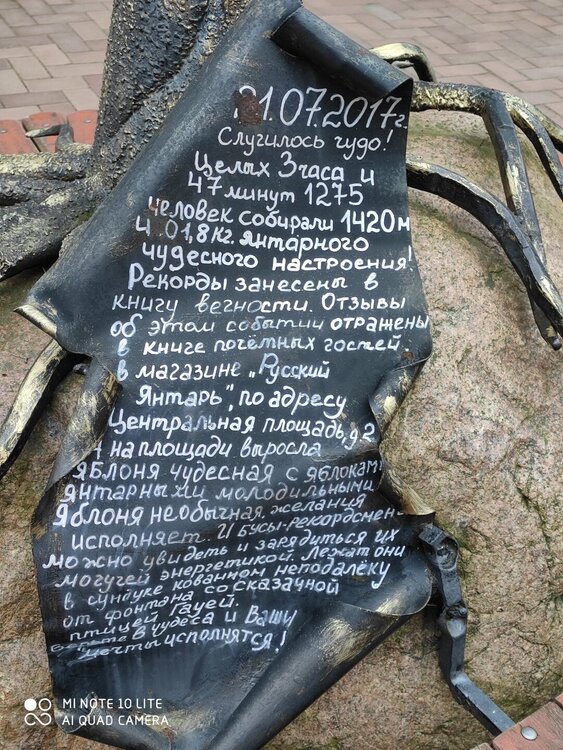 21.07.2017г.
Случилось чудо!
Целых 3 часа и
47 минут 1275
человек собирали 1420м
и 01,8 кг. янтарного
чудесного настроения!
Рекорды занесены в
книгу вечности. Отзывы
об этом событии отражены
в книге почётных гостей
в магазине „Русский
Янтарь", по адресу
Центральная площадь, д.2
А на площади выросла
яблоня чудесная с яблоками
янтарными молодильными
Яблоня необычная желания
исполняет. И Бусы-рекордсмены
можно увидеть и зарядиться их
могучей энергетикой. Лежат они
в сундуке кованном неподалёку
от фонтана со сказочной
птицей Гауей.
в чудеса и Ваши
мечты исполнятся!
MI NOTE 10 LITE
AI QUAD CAMERA